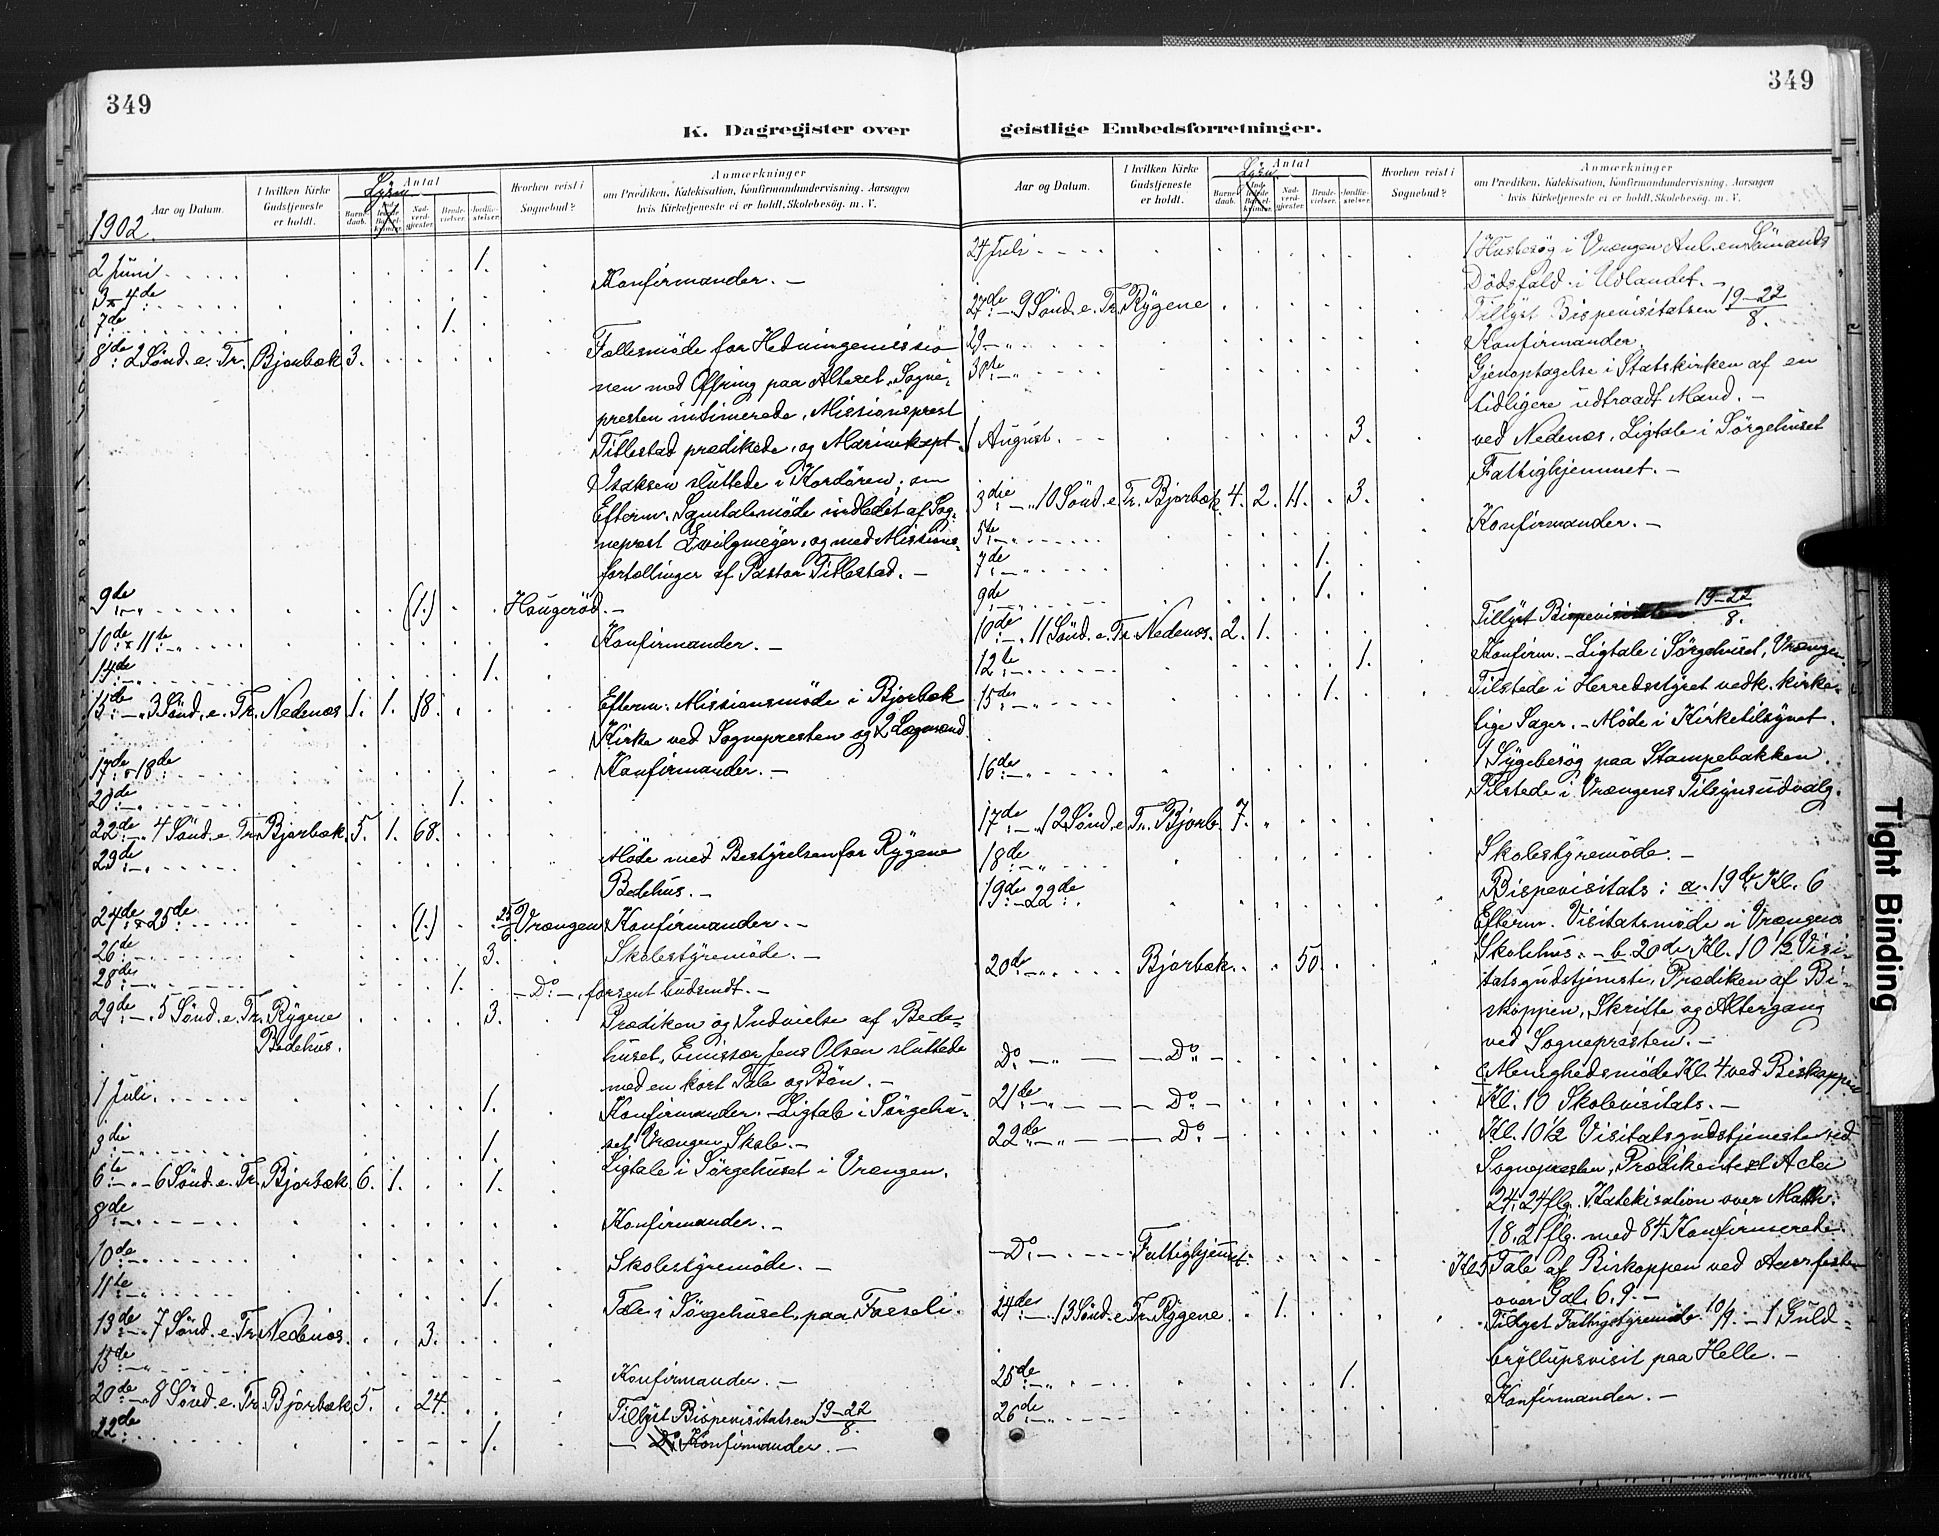 349
K. Dagregister over
Aar og Datum.
I hvilken Kirke Gudstjeneste er holdt.
Antal
Barnedaab.
Nadverdgjester
Brudevielser
Jordfæstelser.
Hvorhen reist i Sognebud?
Anmerkninger
om Prædiken, Katekisation, Konfirmandundervisning, Aarsagen
hvis Kirketjeneste ei er holdt, Skolebesøg. m. V.
1902.
2 Juni 1.
3–4de Konfirmander. —
7de 1.
8de 2 Sønd. e. Tr. Bjorbæk 3. Fællesmøde for Hedningemissio
nen med Offring paa Alteret. Sogne-
presten intimerede, Missionsprest
Titlestad prædikede, og Marinekapt.
Isaksen sluttede i Kordøren; om
Efterm. Samtalemøde indledet af Sog-
neprest og med Missions-
fortællinger af Pastor Titlestad. —
9de (1.) Haugerød. —
10de & 11te Konfirmander. —
14de 1.
15de 3 Sønd. e. Tr. Nedenæs 1. 1. 18. Efterm. Missionsmøde i Bjorbæk
Kirke ved Sognepresten og 2 Lægmænd.
17de & 18de Konfirmander. —
20de 1.
22de 4 Sønd. e. Tr. Bjorbæk 5. 1. 68.
23de Møde med Bestyrelsen for Rygene
Bedehus. —
24de & 25de (1.) 25/6 Vrængen Konfirmander. —
26de 3. Skolestyremøde. —
28de 1. — Do —, forsent budsendt. —
29de 5 Sønd. e. Tr. Rygene 3. Prædiken og Indvielse af Bede-
Bedehus. huset, Emissær Jens Olsen sluttede
med en kort Tale og Bøn. —
1 Juli. 1. Konfirmander. — Ligtale i Sørgehu-
3die 1. set, Vrængen Skole. —
6te 6 Sønd. e. Tr. Bjorbæk 6. 1. 1. Ligtale i Sørgehuset i Vrængen.
8de Konfirmander. —
10de Skolestyremøde. —
11te 1. Tale i Sørgehuset paa
13de 7 Sønd. e. Tr. Nedenæs. 3.
15de Konfirmander. —
20de 8 Sønd. e. Tr. Bjorbæk 5. 24. Tillyst Bispevisitatsen 19–22/8.
22de 1. — Do Konfirmander. —
349
geistlige Embedsforretninger.
Aar og Datum.
I hvilken Kirke Gudstjeneste er holdt.
Antal
Barnedaab.
Nadverdgjester
Brudevielser.
Jordfæstelser.
Hvorhen reist i Sognebud?
Anmerkninger
om Prædiken, Katekisation, Konfirmandundervisning, Aarsagen
hvis Kirketjeneste ei er holdt, Skolebesøg. m. V.
24 Juli 1 Husbesøg i Vrængen Anl. en Sømands
Dødsfald i Udlandet. —
27de 9 Sønd. e. Tr. Rygene Tillyst Bispevisitatsen 19–22/8.
29 Konfirmander.
30te Gjenoptagelse i Statskirken af en
tidligere udtraadt Mand. —
1 August. 3. ved Nedenæs, Ligtale i Sørgehuset
Fattighjemmet. —
3die 10 Sønd. e. Tr. Bjorbæk 4. 2. 11. 3.
5te Konfirmander. —
7de 1.
9de 1.
10de 11 Sønd. e. Tr. Nedenæs. 2. 1. Tillyst Bispevisitatsen 19–22/8.
12te 1. Konfirm. — Ligtale i Sørgehuset, Vrængen.
15de 1. Tilstede i Herredsstyret vedk. kirke-
lige Sager. — Møde i Kirketilsynet.
16de 1 Sygebesøg paa Stampebakken.
Tilstede i Vrængens Tilsynsudvalg.
17de 12 Sønd. e. Tr. Bjorb. 7.
18de Skolestyremøde. —
19de–22de Bispevisitats: a. 19de Kl. 6
Efterm. Visitatsmøde i Vrængens
Skolehus. — b. 20de Kl. 10 1/2 Visi-
20de Bjorbæk. 50. tatsgudstjeneste, Prædiken af Bi-
skoppen, Skrifte og Altergang
ved Sognepresten. —
Do — Do — Menighedsmøde Kl. 4 ved Biskoppen
21de — Do — Kl. 10 Skolevisitats. —
22de — Do — Kl. 10 1/2 Visitatsgudstjeneste ved
Sognepresten, Prædikentext Acta
24, 24 flg. Katekisation over Math.
18, 21 flg. med 84 Konfirmerede.
— Do — Fattighjemmet. Kl. 5 Tale af Biskoppen ved
over Gal. 6, 9. —
24de 13 Sønd. e. Tr. Rygene. 1. Tillyst Fattigstyremøde 10/9. — 1 Guld-
bryllupsvisit paa Helle. —
25de 1. Konfirmander. —
26de
Tight Binding